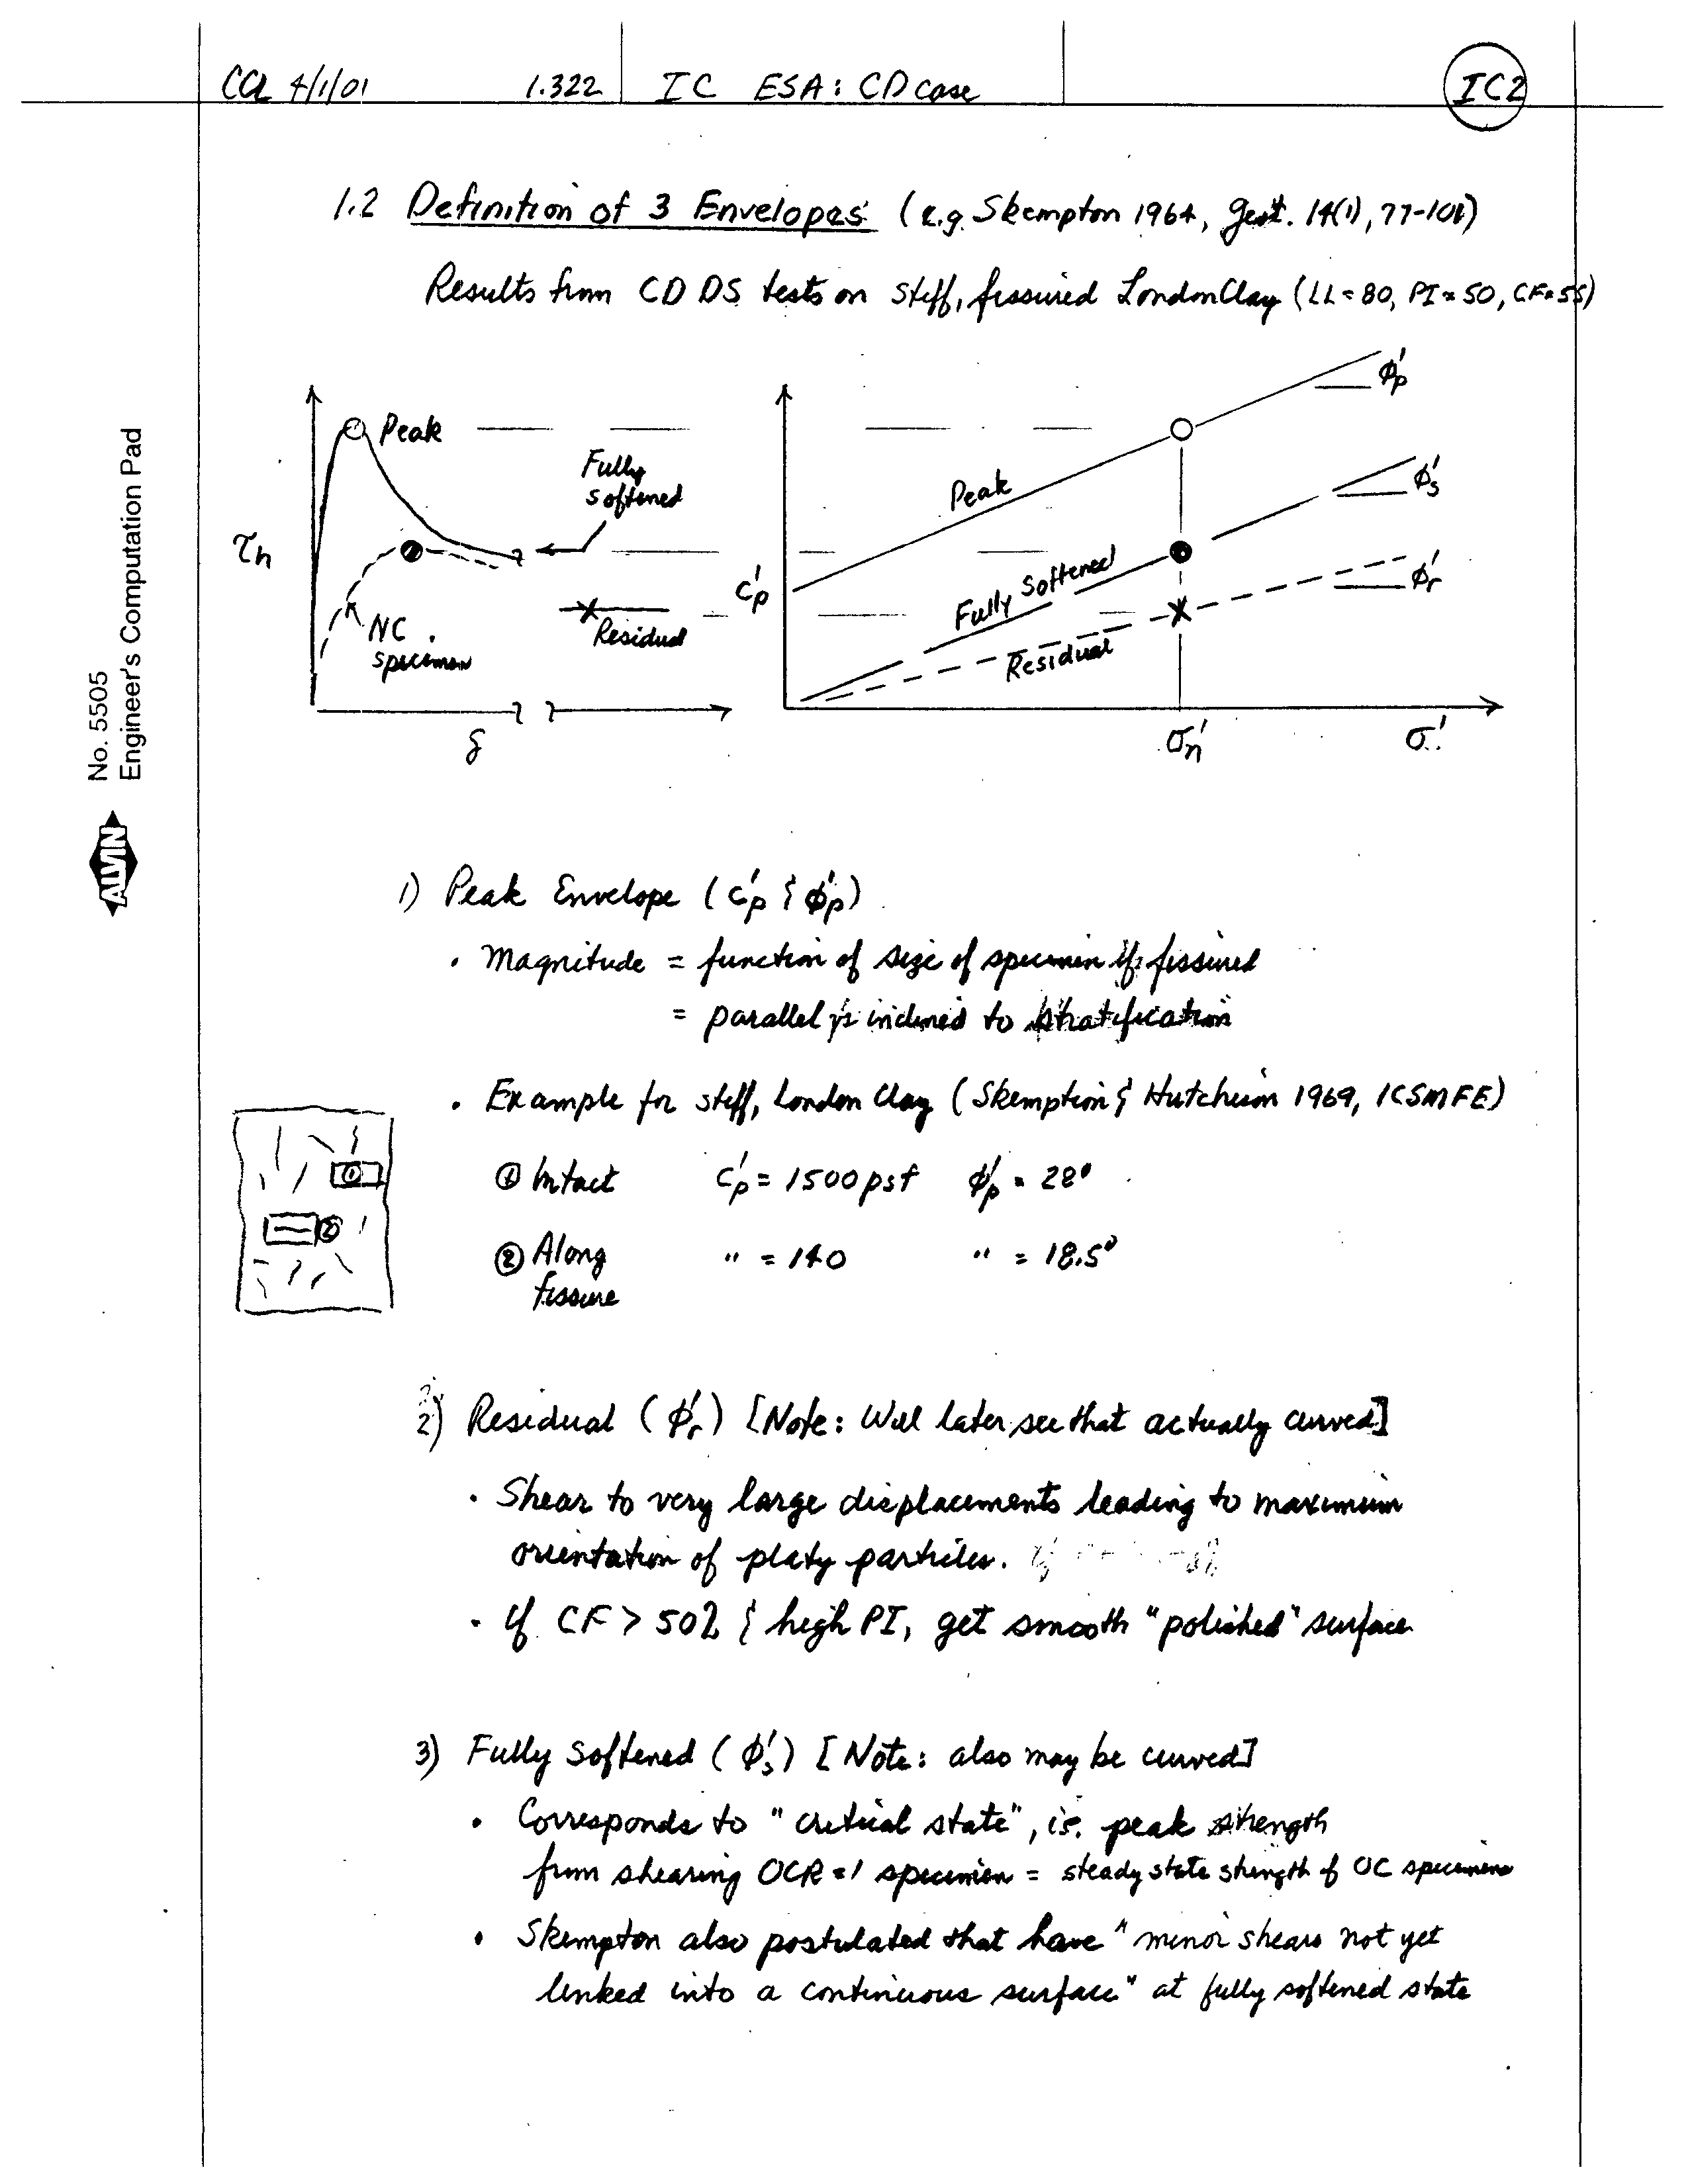 CCL 4/1/01 1.322 IC ESA: CD case IC2
1.2 Definition of 3 Envelopes (e.g. Skempton 1964, Geot. 14(1), 77-101)
Results from CD DS tests on stiff, fissured London Clay (LL = 80, PI = 50, CF = 55)
τh
Peak
Fully
softened
NC
specimen
Residual
δ
c'p
Peak
Fully Softened
Residual
φ'p
φ's
φ'r
σ'n
σ'
No. 5505
Engineer's Computation Pad
ALVIN
1) Peak Envelope (c'p & φ'p)
• Magnitude = function of size of specimen if fissured
= parallel vs inclined to stratification
• Example for stiff, London Clay (Skempton & Hutchison 1969, ICSMFE)
① Intact c'p = 1500 psf φ'p = 28°
② Along " = 140 " = 18.5°
fissure
①
②
2) Residual (φ'r) [Note: Will later see that actually curved]
• Shear to very large displacements leading to maximum
orientation of platy particles.
• If CF > 50% & high PI, get smooth "polished" surface
3) Fully Softened (φ's) [Note: also may be curved]
• Corresponds to "critical state", ie. peak strength
from shearing OCR = 1 specimen = steady state strength of OC specimens
• Skempton also postulated that have "minor shears not yet
linked into a continuous surface" at fully softened state